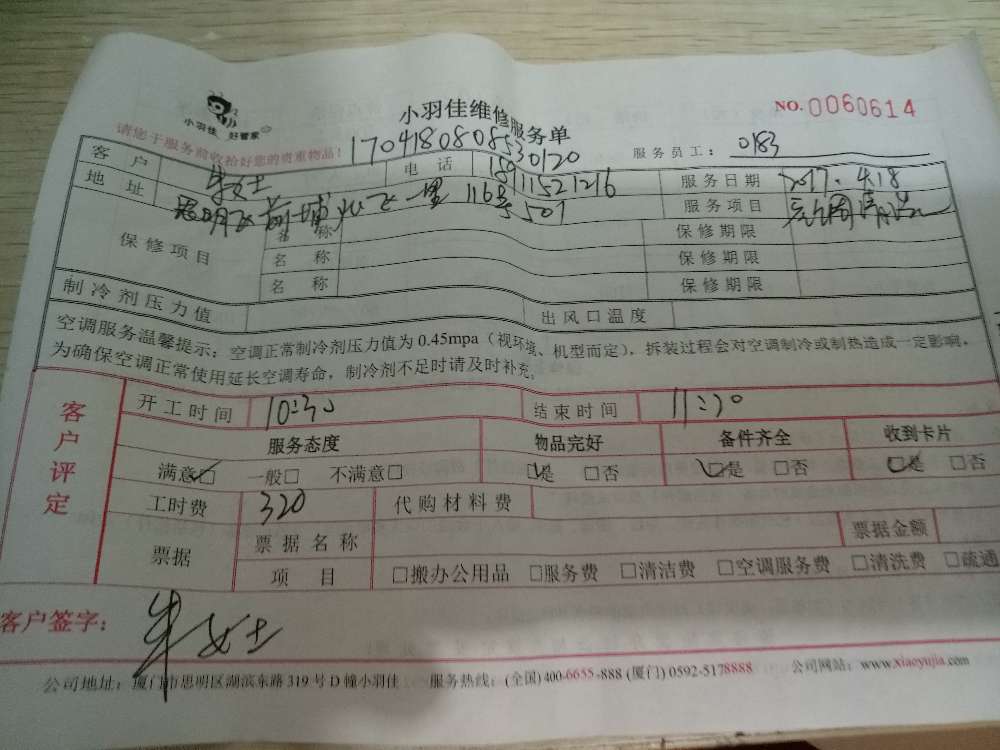 小羽佳 好管家
小羽佳维修服务单
NO.0060614
请您于服务前收拾好您的贵重物品!
服务员工: 0183
客户 朱女士 电话 服务日期 2017.4.18
地址 思明区前埔北区一里 116号507 服务项目
保修项目 名称 保修期限
名称 保修期限
名称 保修期限
制冷剂压力值 出风口温度
空调服务温馨提示: 空调正常制冷剂压力值为 0.45mpa (视环境、机型而定), 拆装过程会对空调制冷或制热造成一定影响。
为确保空调正常使用延长空调寿命, 制冷剂不足时请及时补充。
客户评定
开工时间 10:30 结束时间 11:30
服务态度 物品完好 备件齐全 收到卡片
满意☑ 一般□ 不满意□ ☑是 □否 ☑是 □否 ☑是 □否
工时费 320 代购材料费
票据 票据名称 票据金额
项目 □搬办公用品 □服务费 □清洁费 □空调服务费 □清洗费 □疏通
客户签字: 朱女士
公司地址: 厦门市思明区湖滨东路 319 号 D 幢小羽佳 服务热线: (全国) 400-6655-888 (厦门) 0592-5178888 公司网站: www.xiaoyujia.com